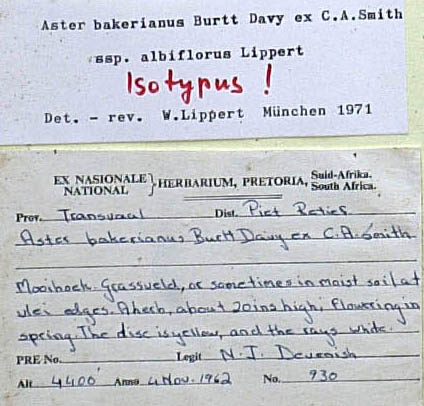 Aster bakerianus Burtt Davy ex C.A.Smith
ssp. albiflorus Lippert
Isotypus !
Det. - rev. W.Lippert München 1971
EX NASIONALE } HERBARIUM, PRETORIA, Suid-Afrika.
NATIONAL South Africa.
Prov. Transvaal Dist. Piet Retief
Aster bakerianus Burtt Davy ex C.A. Smith
Mooihoek. Grassveld, or sometimes in moist soil at
vlei edges. A herb, about 20 ins high, flowering in
spring. The disc is yellow, and the rays white.
PRE No. Legit N. J. Devenish
Alt 4400' Anno 4 Nov. 1962 No. 930